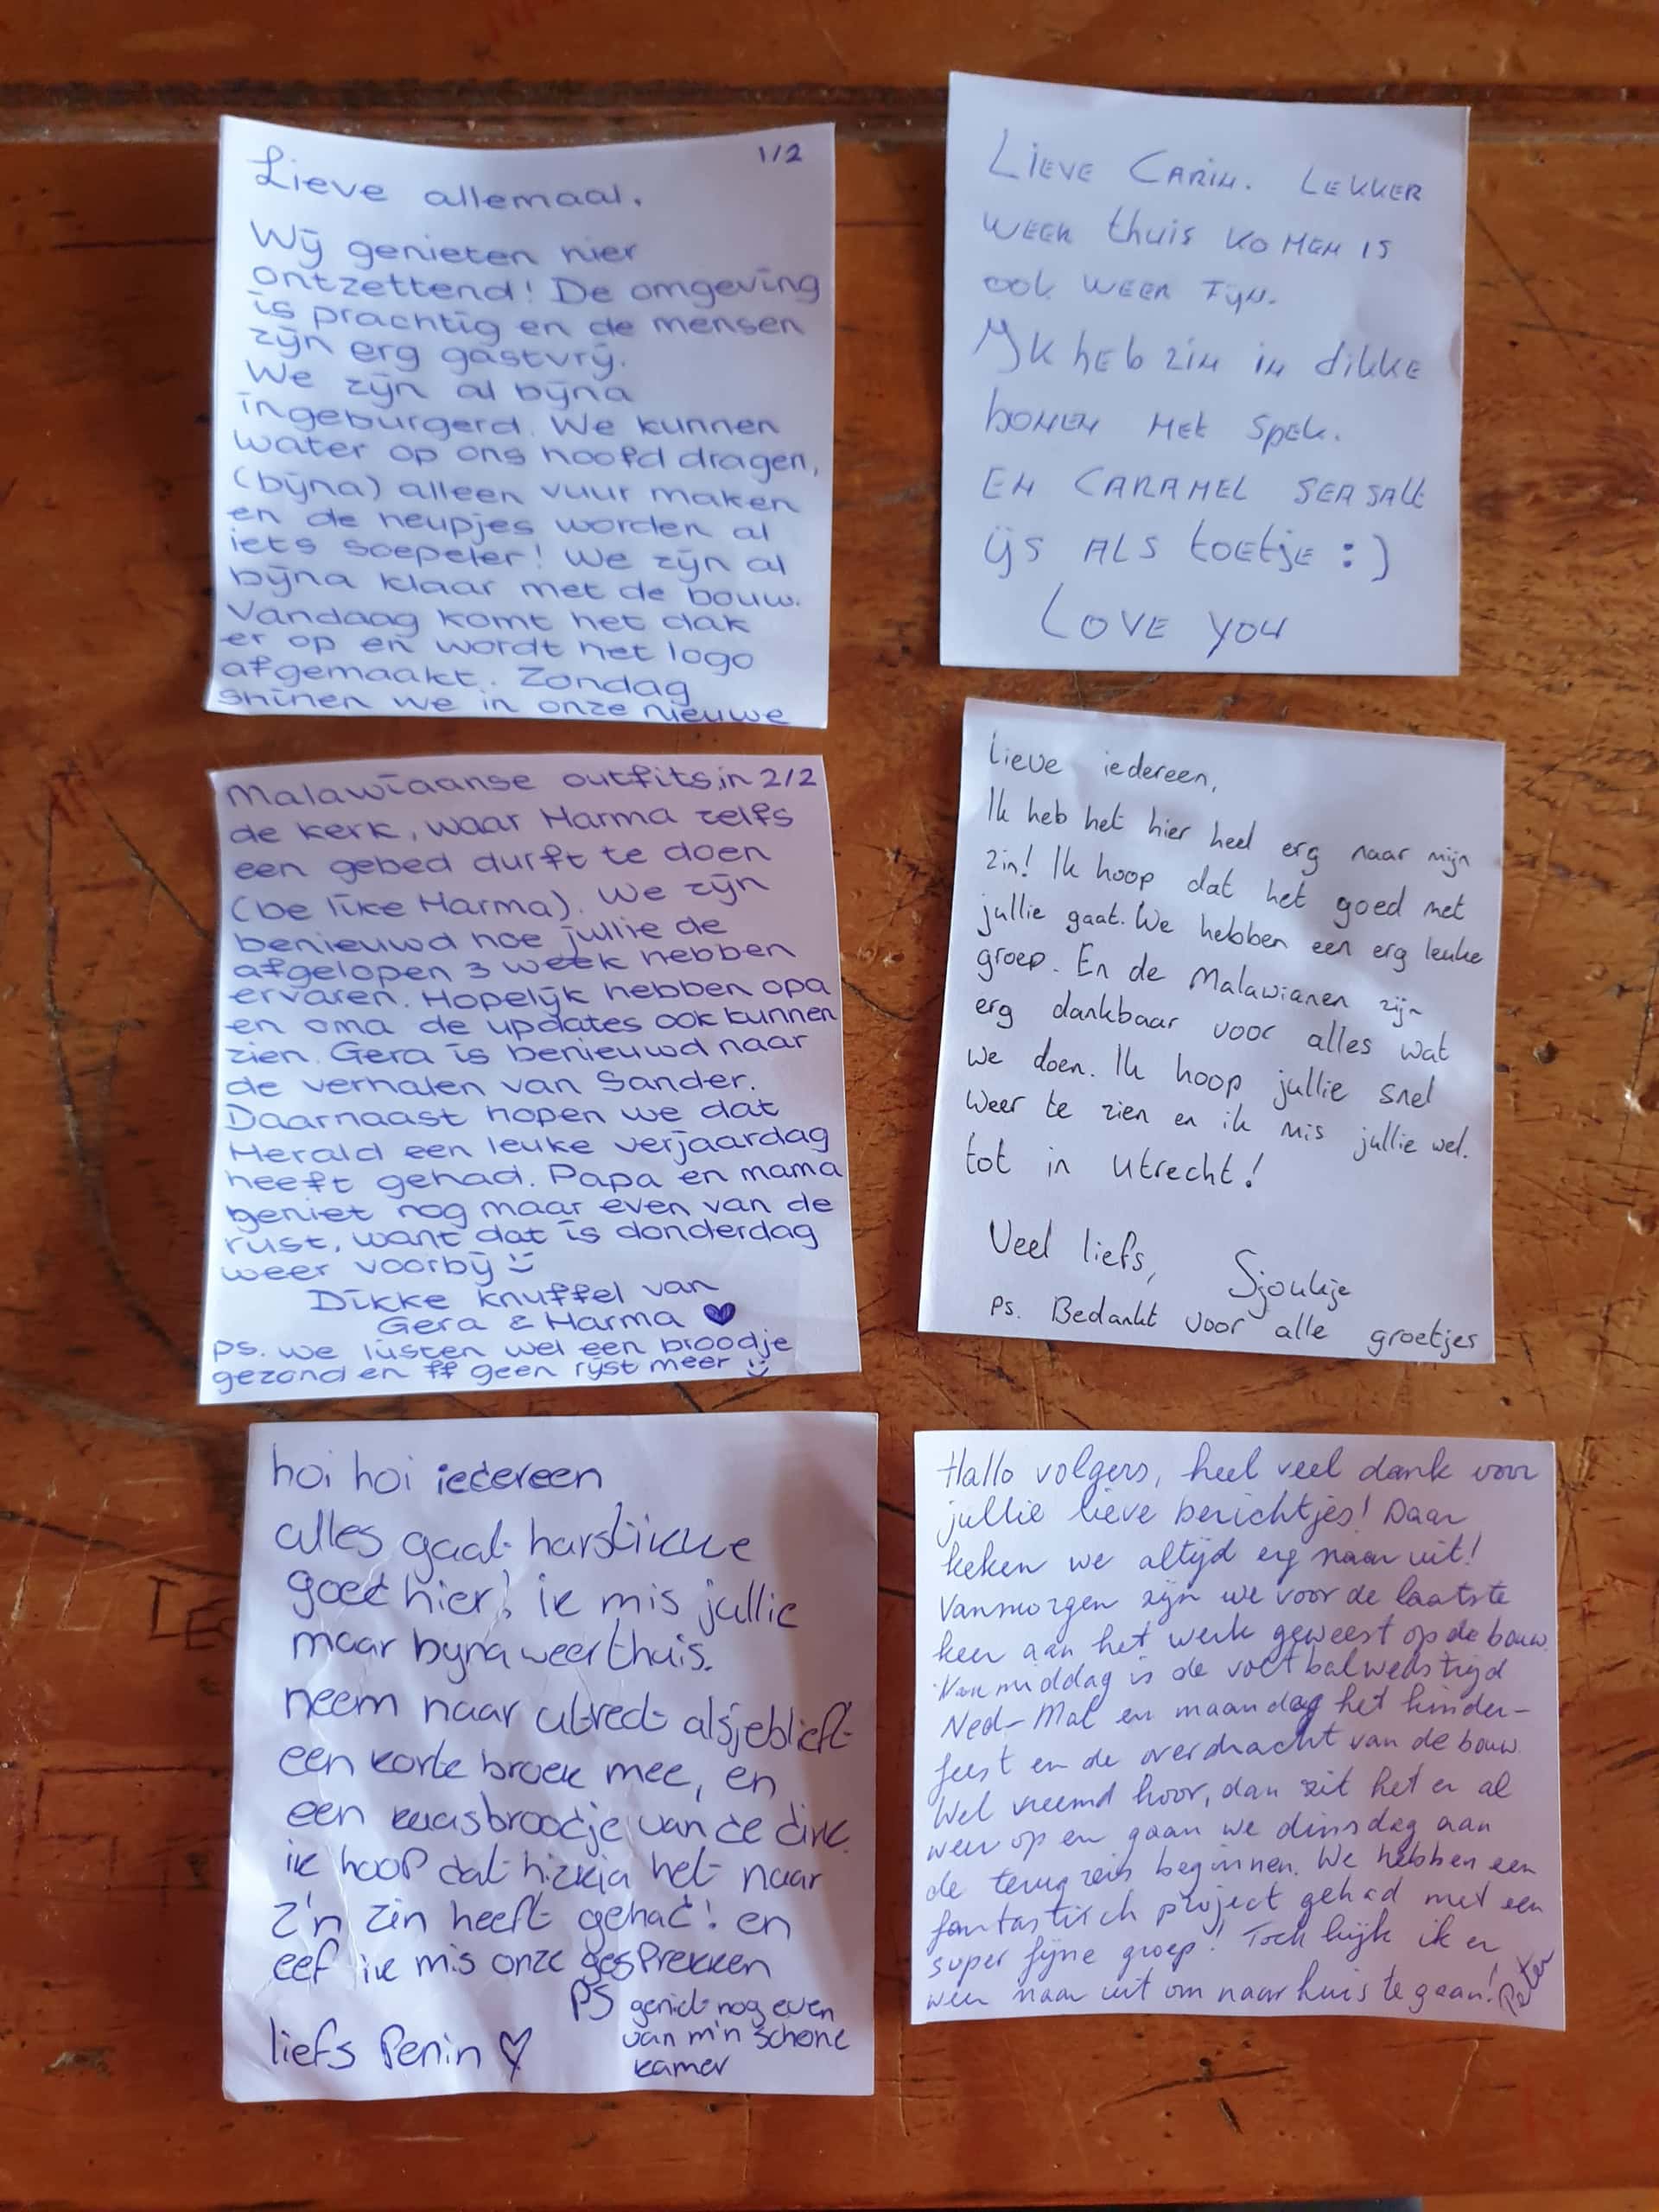 1/2
Lieve allemaal,
Wij genieten hier
ontzettend! De omgeving
is prachtig en de mensen
zijn erg gastvrij.
We zijn al bijna
ingeburgerd. We kunnen
water op ons hoofd dragen,
(bijna) alleen vuur maken
en de heupjes worden al
iets soepeler! We zijn al
bijna klaar met de bouw.
Vandaag komt het dak
er op en wordt het logo
afgemaakt. Zondag
shinen we in onze nieuwe
Malawiaanse outfits, in 2/2
de kerk, waar Harma zelfs
een gebed durft te doen
(be like Harma). We zijn
benieuwd hoe jullie de
afgelopen 3 week hebben
ervaren. Hopelijk hebben opa
en oma de updates ook kunnen
zien. Gera is benieuwd naar
de verhalen van Sander.
Daarnaast hopen we dat
Herald een leuke verjaardag
heeft gehad. Papa en mama
geniet nog maar even van de
rust, want dat is donderdag
weer voorbij :)
Dikke knuffel van
Gera & Harma ♥
ps. we lusten wel een broodje
gezond en ff geen rijst meer :)
hoi hoi iedereen
alles gaat hartstikke
goed hier! ik mis jullie
maar bijna weer thuis.
neem naar utrect alsjeblieft
een korte broek mee, en
een kaasbroodje van de dirk
ik hoop dat hizkia het naar
z'n zin heeft gehad! en
eef ik mis onze gesprekken
PS geniet nog even
van m'n schone
kamer
liefs Penin ♡
LIEVE CARIN. LEKKER
WEER thuis KOMEN IS
OOK WEER FIJN.
IK HEB ZIN in dikke
bonen MET Spek.
EN CARAMEL SEASALT
ijs ALS toetje :)
LOVE YOU
Lieve iedereen,
Ik heb het hier heel erg naar mijn
zin! Ik hoop dat het goed met
jullie gaat. We hebben een erg leuke
groep. En de Malawianen zijn
erg dankbaar voor alles wat
we doen. Ik hoop jullie snel
weer te zien en ik mis jullie wel.
tot in Utrecht!
Veel liefs, Sjoukje
Ps. Bedankt voor alle groetjes
Hallo volgers, heel veel dank voor
jullie lieve berichtjes! Daar
keken we altijd erg naar uit!
Vanmorgen zijn we voor de laatste
keer aan het werk geweest op de bouw.
Vanmiddag is de voetbalwedstrijd
Ned-Mal en maandag het kinder-
feest en de overdracht van de bouw.
Wel vreemd hoor, dan zit het er al
weer op en gaan we dinsdag aan
de terugreis beginnen. We hebben een
fantastisch project gehad met een
super fijne groep! Toch kijk ik er
weer naar uit om naar huis te gaan! Peter